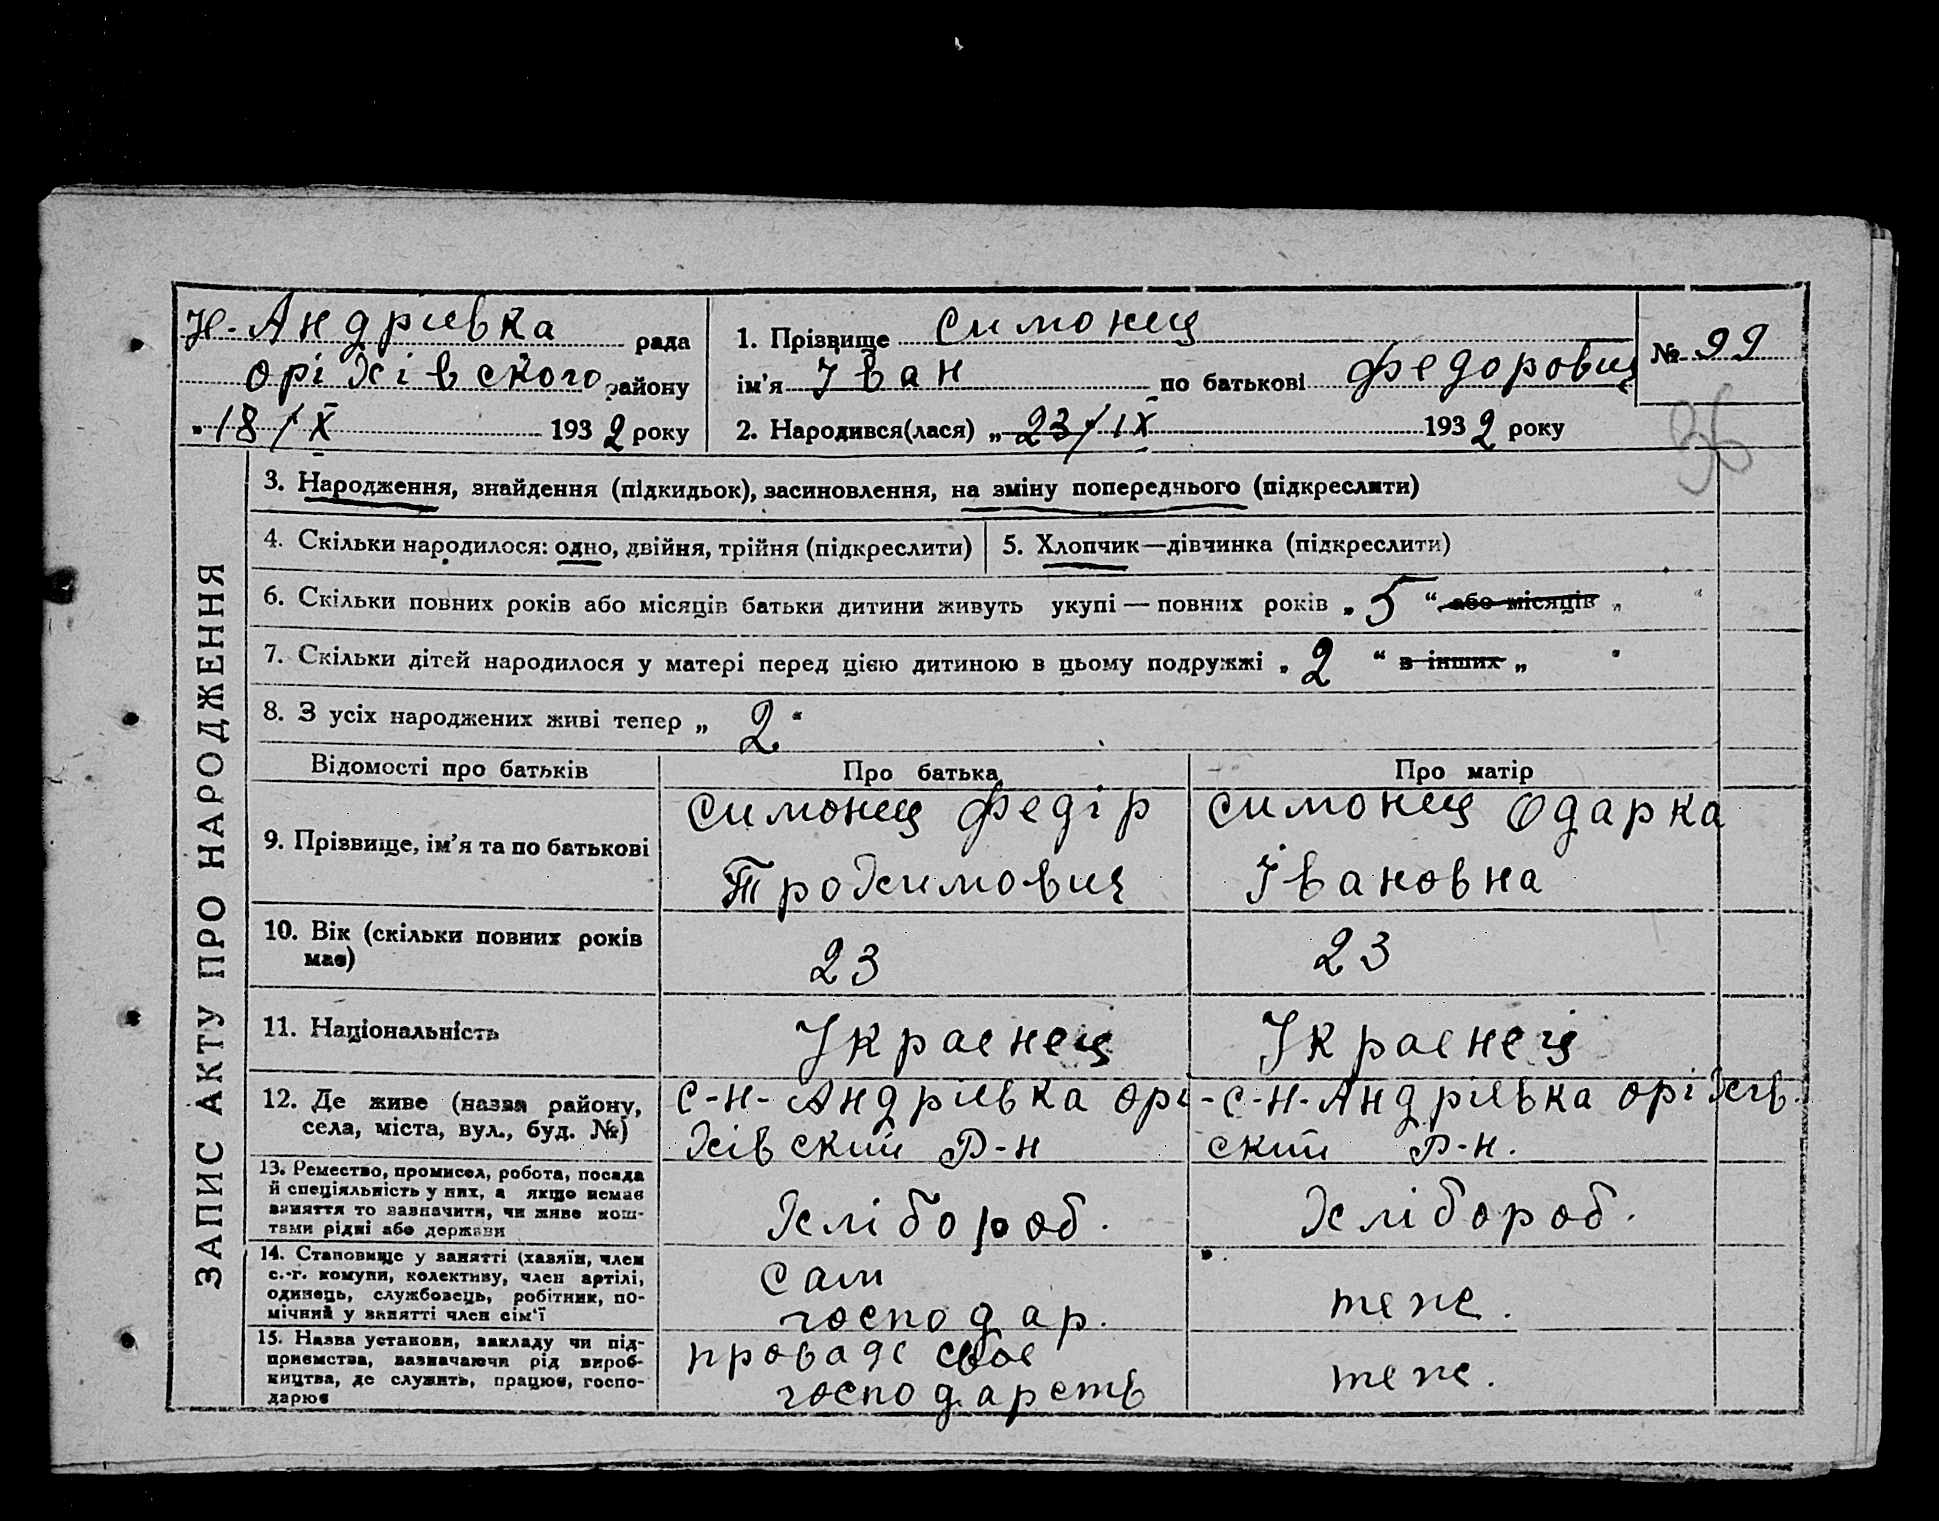 Н-Андрієвка рада
оріхівского району
„18/X 1932 року
1. Прізвище Симонец
ім’я Іван по батькові Федорович
2. Народився(лася) „23/IX 1932 року
№ 99
36
ЗАПИС АКТУ ПРО НАРОДЖЕННЯ
3. Народження, знайдення (підкидьок), засиновлення, на зміну попереднього (підкреслити)
4. Скільки народилося: одно, двійня, трійня (підкреслити)
5. Хлопчик—дівчинка (підкреслити)
6. Скільки повних років або місяців батьки дитини живуть укупі — повних років „5“ або місяців „ “
7. Скільки дітей народилося у матері перед цією дитиною в цьому подружжі „2“ в інших „ “
8. З усіх народжених живі тепер „2“
Відомості про батьків
Про батька
Про матір
9. Прізвище, ім’я та по батькові
Симонец Федір
Трохимович
Симонец Одарка
Івановна
10. Вік (скільки повних років
має)
23
23
11. Національність
Украенец
Украенец
12. Де живе (назва району,
села, міста, вул., буд. №)
с-Н-Андрієвка орі-
хівский Р-н
с-Н-Андрієвка оріхів-
ский Р-н.
13. Ремество, промисел, робота, посада
й спеціяльність у них, а якщо немає
заняття то зазначити, чи живе кош-
тами рідні або держави
Хлібороб.
Хлібороб.
14. Становище у занятті (хазяїн, член
с.-г. комуни, колективу, член артілі,
одинець, службовець, робітник, по-
мічний у занятті член сім’ї
Сам
господар.
теже.
15. Назва установи, закладу чи під-
приємства, зазначаючи рід вироб-
ництва, де служить, працює, госпо-
дарює
провадe своe
господарств
теже.